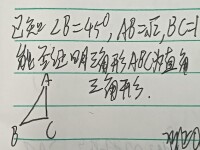 已知∠B=45°,AB=√2,BC=1
能否证明三角形ABC为直角
三角形.
A
B C